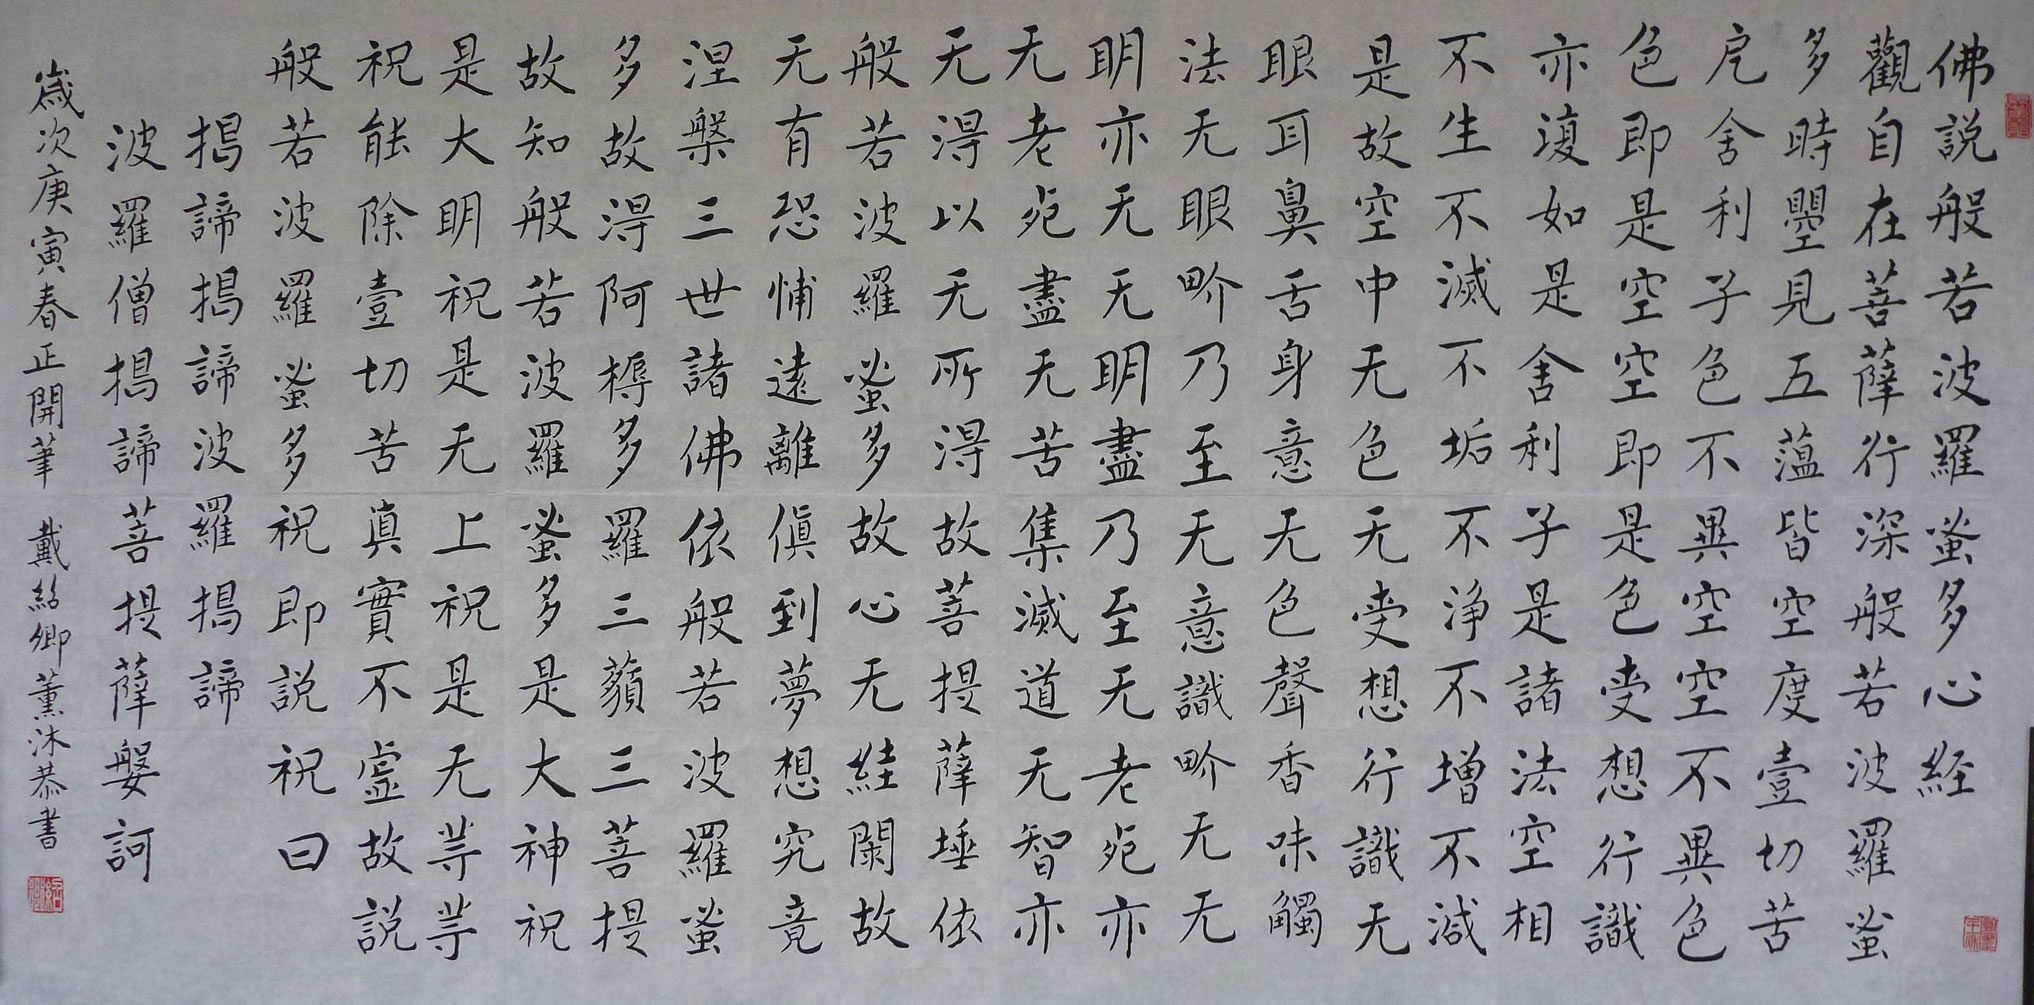 佛説般若波羅蜜多心経
觀自在菩薩行深般若波羅蜜
多時曌見五蘊皆空度壹切苦
戹舍利子色不異空空不異色
色即是空空即是色受想行識
亦復如是舍利子是諸法空相
不生不滅不垢不淨不增不減
是故空中无色无受想行識无
眼耳鼻舌身意无色聲香味觸
法无眼畍乃至无意識畍无无
明亦无无明盡乃至无老死亦
无老死盡无苦集滅道无智亦
无得以无所得故菩提薩埵依
般若波羅蜜多故心无絓閡故
无有恐悑遠離傎到夢想究竟
涅槃三世諸佛依般若波羅蜜
多故得阿槈多羅三藐三菩提
故知般若波羅蜜多是大神祝
是大明祝是无上祝是无等等
祝能除壹切苦真實不虛故説
般若波羅蜜多祝即説祝曰
揭諦揭諦波羅揭諦
波羅僧揭諦菩提薩媻訶
歲次庚寅春正開筆 戴紹卿薰沐恭書